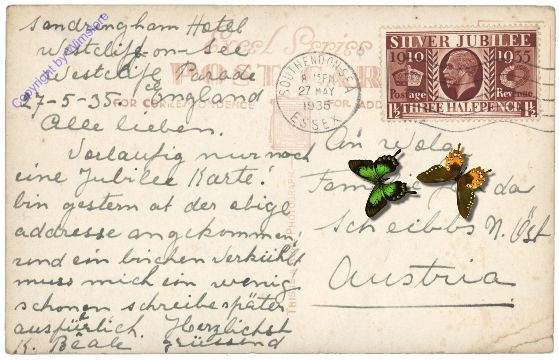 Sandringham Hotel
Westcliff-on-See
Westcliff Parade
27-5-35. England
Alle lieben.
Vorläufig nur noch
eine Jubilee Karte!
bin gestern at der obige
addresse angekommen,
und ein bischen verkühlt
muss mich ein wenig
schonen schreibe später
ausführlich. Herzlichst
K. Beale grüssend
Copyright by
POST
FOR CORRESPONDENCE
FOR ADD
SOUTHEND-ON-SEA
8.15PM
27 MAY
1935
ESSEX
SILVER JUBILEE
1910 1935
Postage Revenue
1½ THREE HALFPENCE 1½
An
Fam
da
Scheibbs N. Öst
Austria